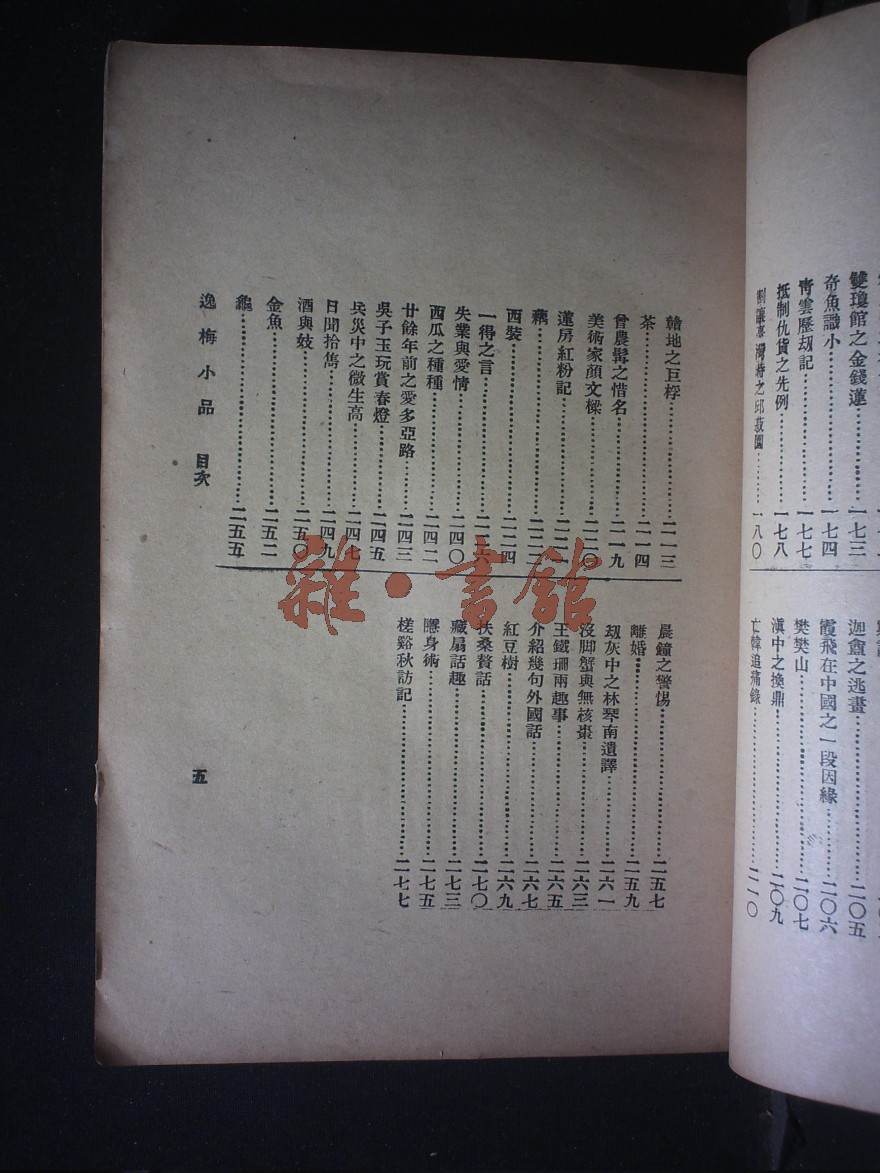 雙瓊館之金錢蓮……一七三
奇魚識小……一七四
靑雲歷刧記……一七七
抵制仇貨之先例……一七八
割讓臺灣時之邱菽園……一八〇
迦盦之逃畫……二〇五
霞飛在中國之一段因緣……二〇六
樊樊山……二〇七
滇中之換鼎……二〇九
亡韓追痛錄……二一〇
贛地之巨桴……二一三
茶……二一四
曾農髯之惜名……二一九
美術家顏文樑……二二〇
蓮房紅粉記……二二一
藕……二二二
西裝……二二四
一得之言……二二六
失業與愛情……二四〇
西瓜之種種……二四二
廿餘年前之愛多亞路……二四三
吳子玉玩賞春燈……二四五
兵災中之微生高……二四七
日聞拾雋……二四九
酒與妓……二五〇
金魚……二五二
龜……二五五
晨鐘之警惕……二五七
離婚……二五九
刧灰中之林琴南遺譯……二六一
沒脚蟹與無核棗……二六三
王鐵珊兩趣事……二六五
介紹幾句外國話……二六七
紅豆樹……二六九
扶桑贅話……二七〇
藏扇話趣……二七三
隱身術……二七五
槎谿秋訪記……二七七
逸梅小品 目次
五
雜·書館